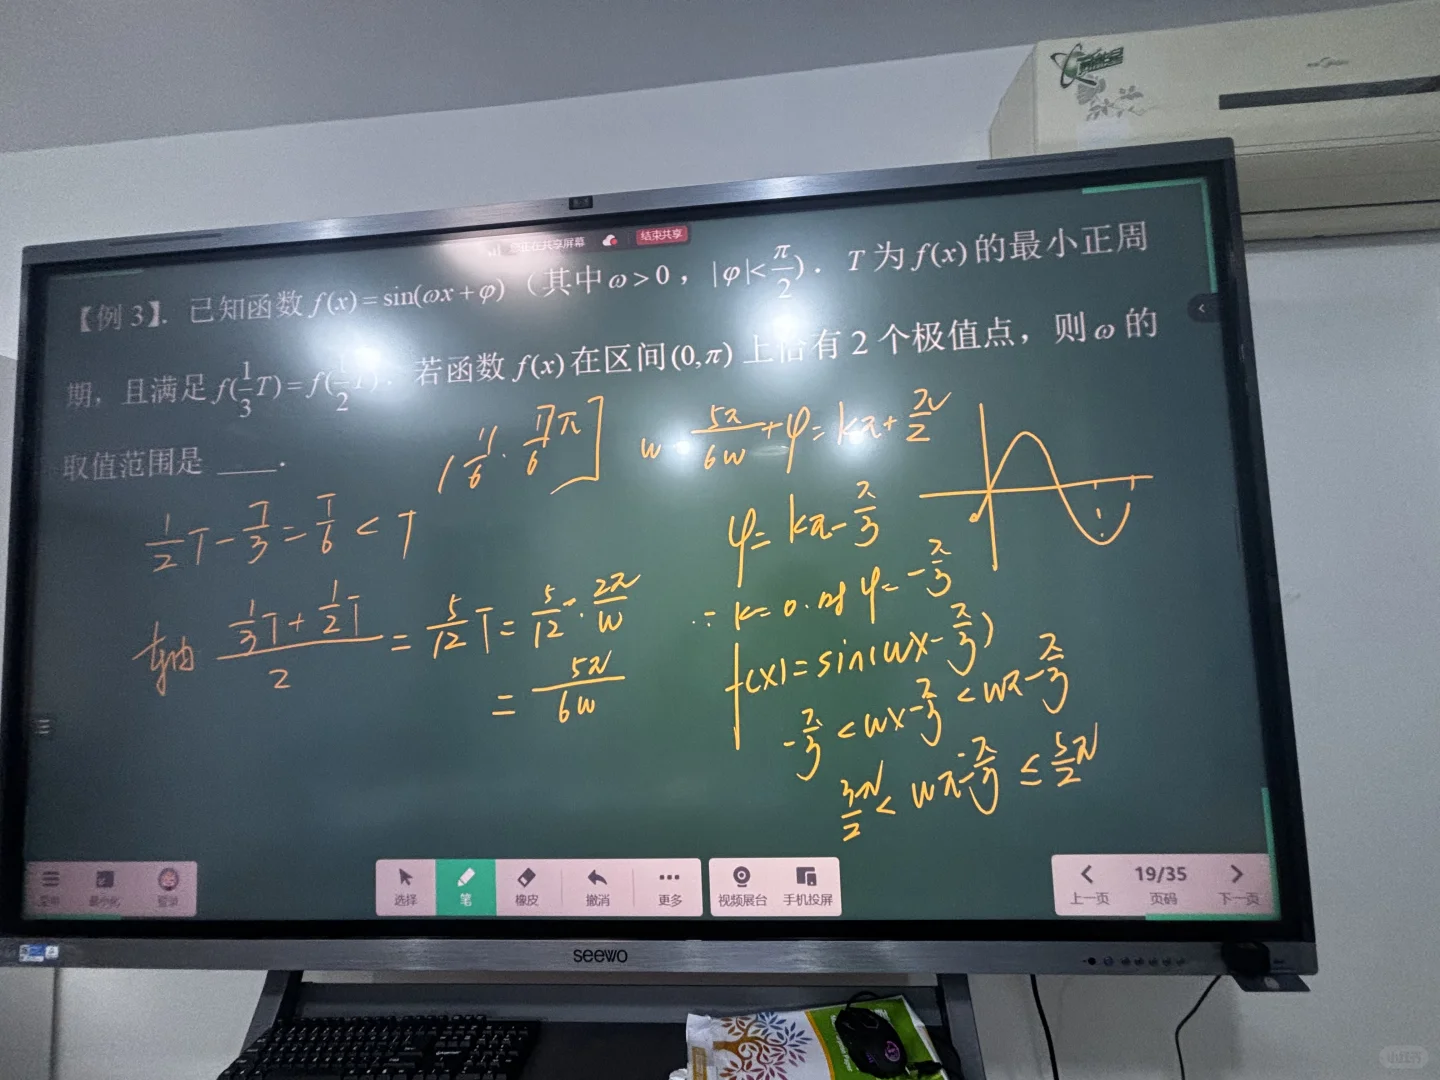 正在共享屏幕 结束共享
【例 3】. 已知函数 f(x)=sin(ωx+φ)（其中ω>0，|φ|<π/2）. T 为 f(x) 的最小正周
期，且满足 f(1/3 T)=f(1/2 T). 若函数 f(x) 在区间(0,π) 上恰有 2 个极值点，则 ω 的
取值范围是 ____.
(11/6 . 17/6 π]
1/2 T - T/3 = T/6 < T
轴 (1/3 T + 1/2 T)/2 = 5/12 T = 5/12 · 2π/w
= 5π/6w
w · 5π/6w + φ = kπ + π/2
φ = kπ - π/3
∴ k=0. 时 φ = -π/3
f(x) = sin(wx - π/3)
-π/3 < wx - π/3 < wπ - π/3
3π/2 < wπ - π/3 ≤ 5/2 π
菜单 最小化 登录
选择 笔 橡皮 撤消 更多
视频展台 手机投屏
19/35
上一页 页码 下一页
seewo
小红书